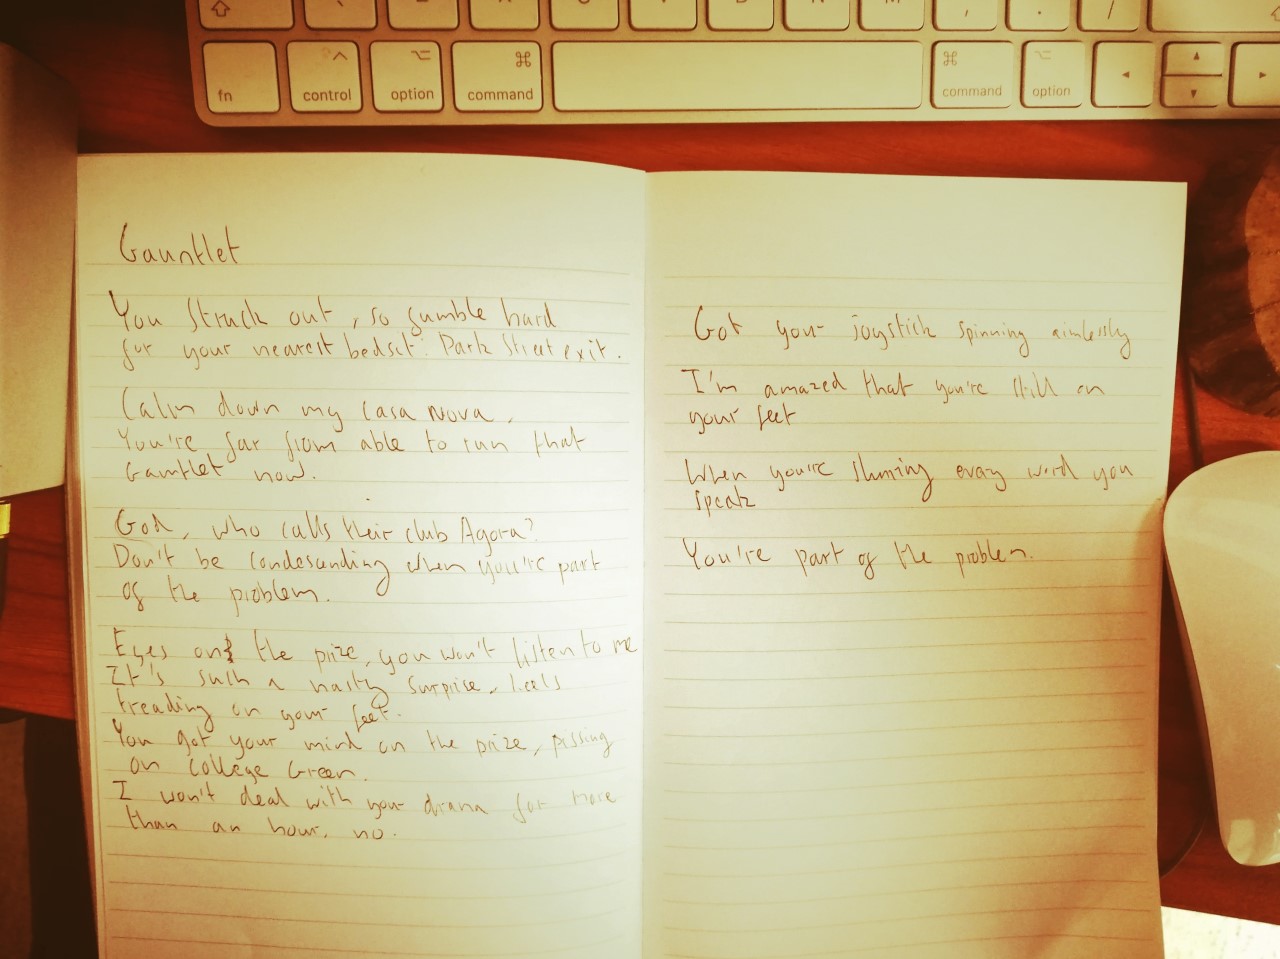 fn
control
option
command
command
option
Gauntlet
You struck out, so gumble hard
for your nearest bedsit. Park Street exit.
Calm down my casa Nova,
You're far from able to run that
Gauntlet now.
God, who calls their club Agora?
Don't be condesending when you're part
of the problem.
Eyes on the prize, you won't listen to me
It's such a nasty surprise, heels
treading on your feet.
You got your mind on the prize, pissing
on College Green.
I won't deal with your drama for more
than an hour, no.
Got your joystick spinning aimlessly
I'm amazed that you're still on
your feet
When you're sluring every word you
speak
You're part of the problem.